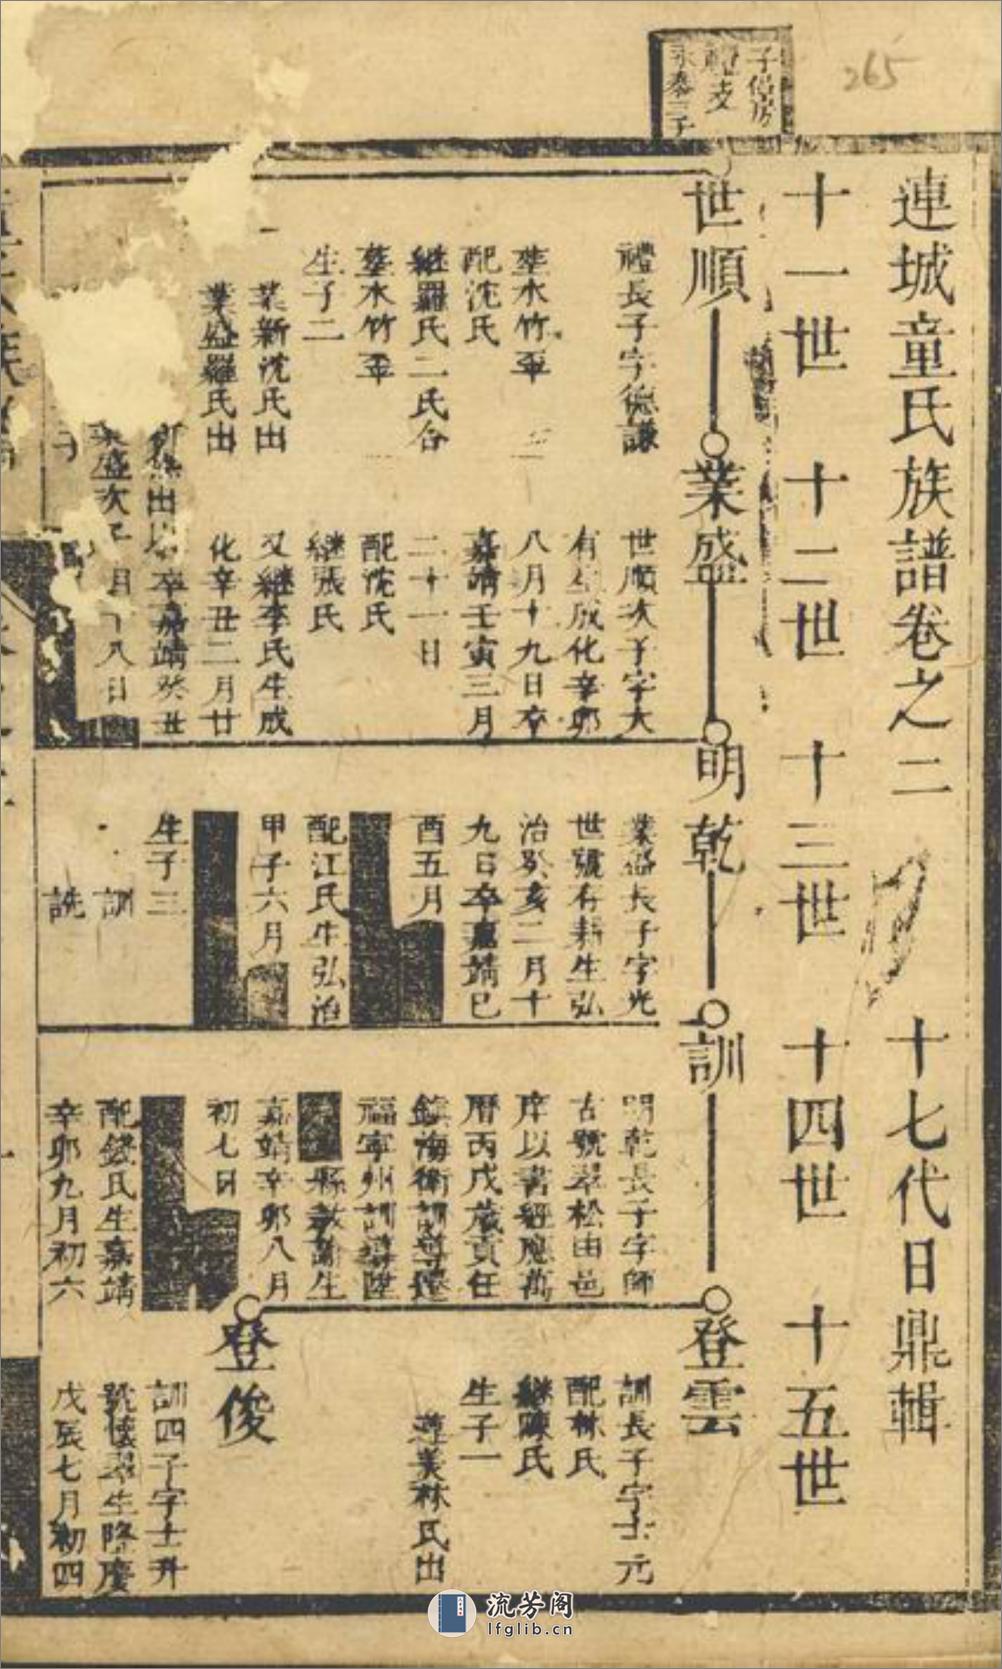 265
子信房
禮支
永泰三子
連城童氏族譜卷之二
十七代日鼎輯
十一世
十二世
十三世
十四世
十五世
世順
業盛
明乾
訓
登雲
禮長子字德謙
葬水竹窠
配沈氏
繼羅氏二氏合
葬水竹窠
生子二
業新沈氏出
業盛羅氏出
世順次子字大
有生成化辛卯
八月十九日卒
嘉靖壬寅三月
二十一日
配沈氏
繼張氏
又繼李氏生成
化辛丑二月廿
卒嘉靖癸丑
月十八日
業盛長子字光
世號有耕生弘
治癸亥二月十
九日卒嘉靖巳
酉五月
配江氏生弘治
甲子六月
生子三
訓
詵
明乾長子字師
古號翠松由邑
庠以書經應萬
曆丙戌歲貢任
鎮海衛訓導遷
福寧州訓導陞
縣教諭生
嘉靖辛卯八月
初七日
配錢氏生嘉靖
辛卯九月初六
訓長子字士元
配林氏
繼陳氏
生子一
蓮美林氏出
登俊
訓四子字士升
號懷翠生隆慶
戊辰七月初四
業盛次子
流芳阁
lfglib.cn